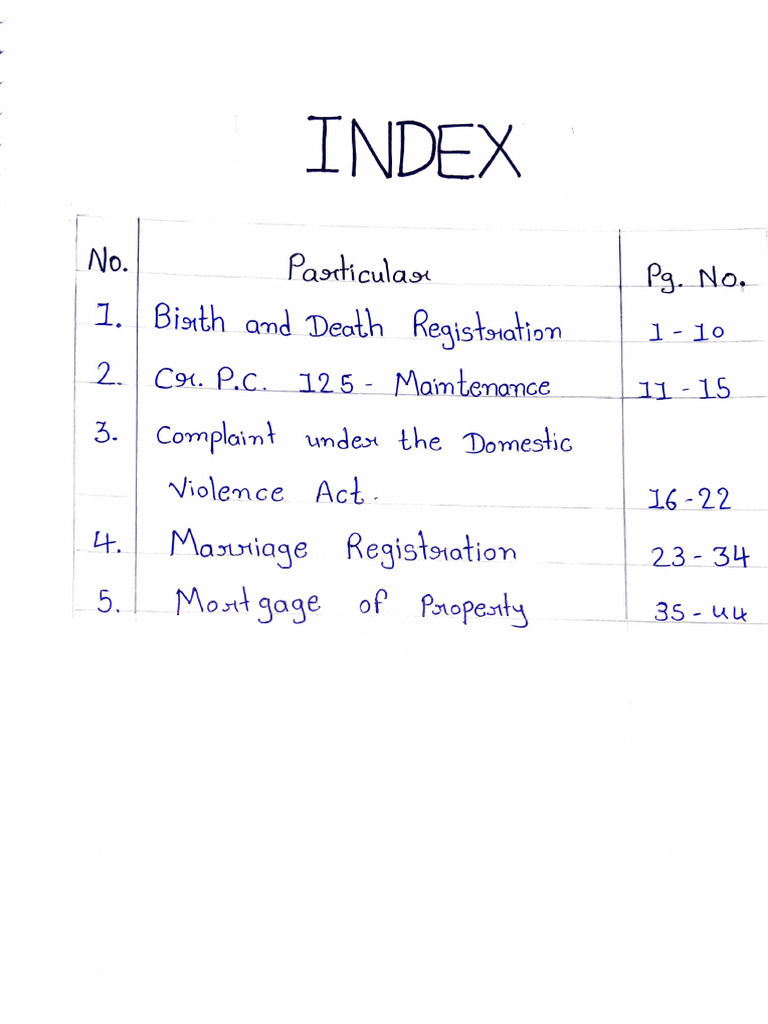 INDEX
No. Particular Pg. No.
1. Birth and Death Registration 1-10
2. Cr. P.C. 125 - Maintenance 11-15
3. Complaint under the Domestic
Violence Act. 16-22
4. Marriage Registration 23-34
5. Mortgage of Property 35-44